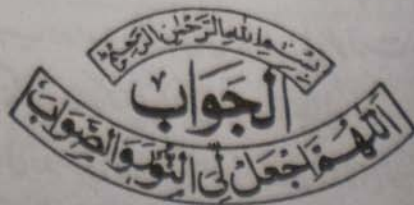 بِسْمِ اللهِ الرَّحْمٰنِ الرَّحِيْمِ
اَلْجَوَاب
اَللّٰهُمَّ اجْعَلْ لِّى النُّوْرَ وَالصَّوَابَ